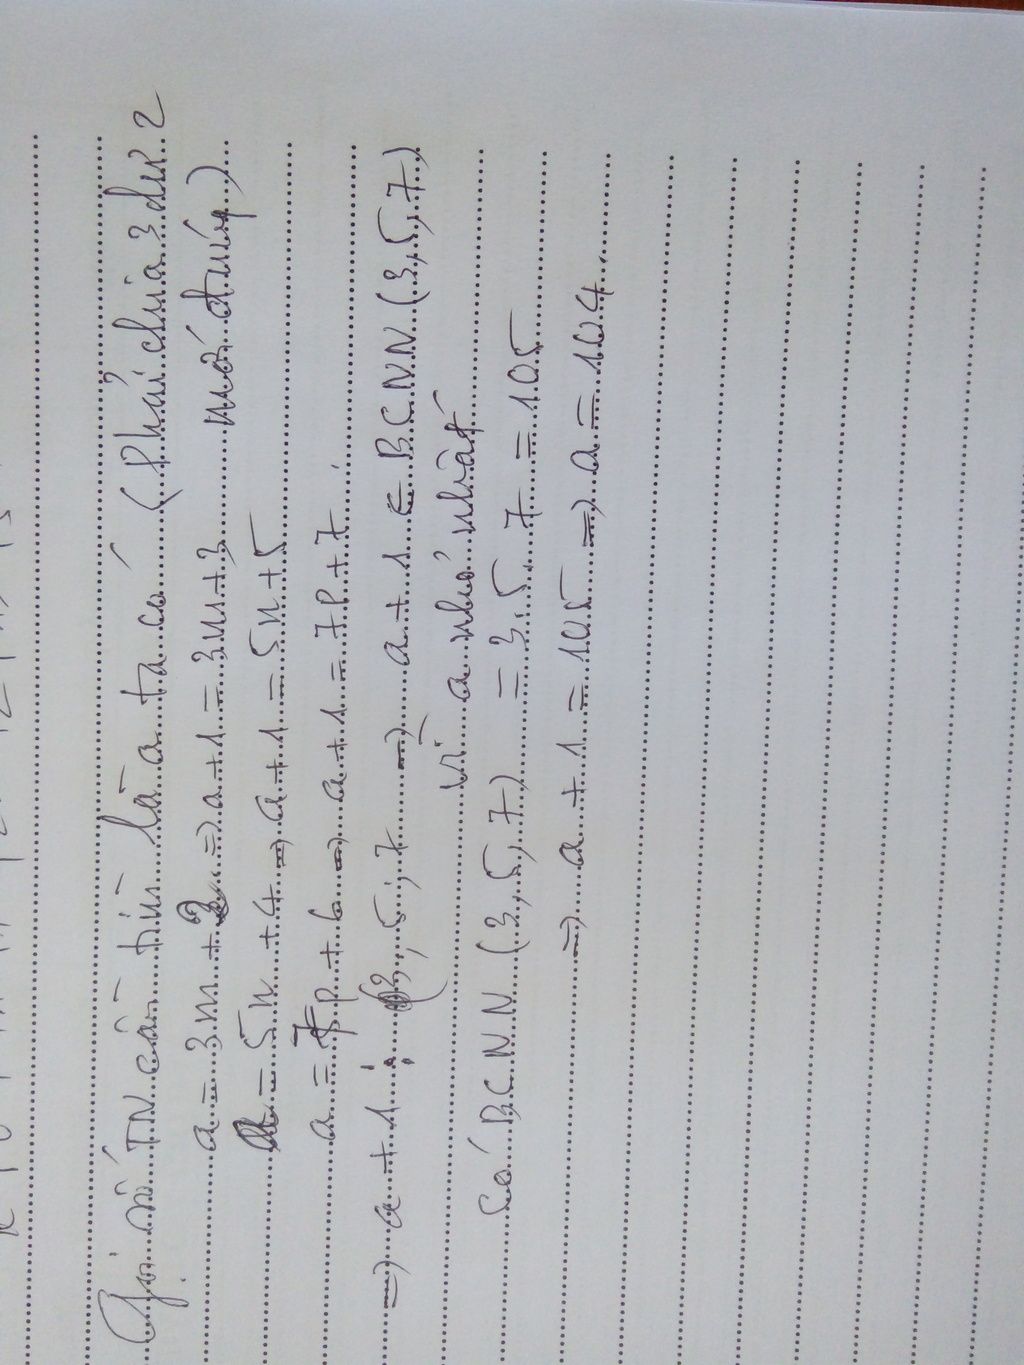 Gọi số TN cần tìm là a ta có (Phải chia 3 dư 2
a = 3m + 2 => a + 1 = 3m + 3 mới đúng)
a = 5n + 4 => a + 1 = 5n + 5
a = 7p + 6 => a + 1 = 7p + 7
=> a + 1 ⋮ (3, 5, 7 => a + 1 ∈ BCNN (3, 5, 7)
vì a nhỏ nhất
Có BCNN (3, 5, 7) = 3.5.7 = 105
=> a + 1 = 105 => a = 104